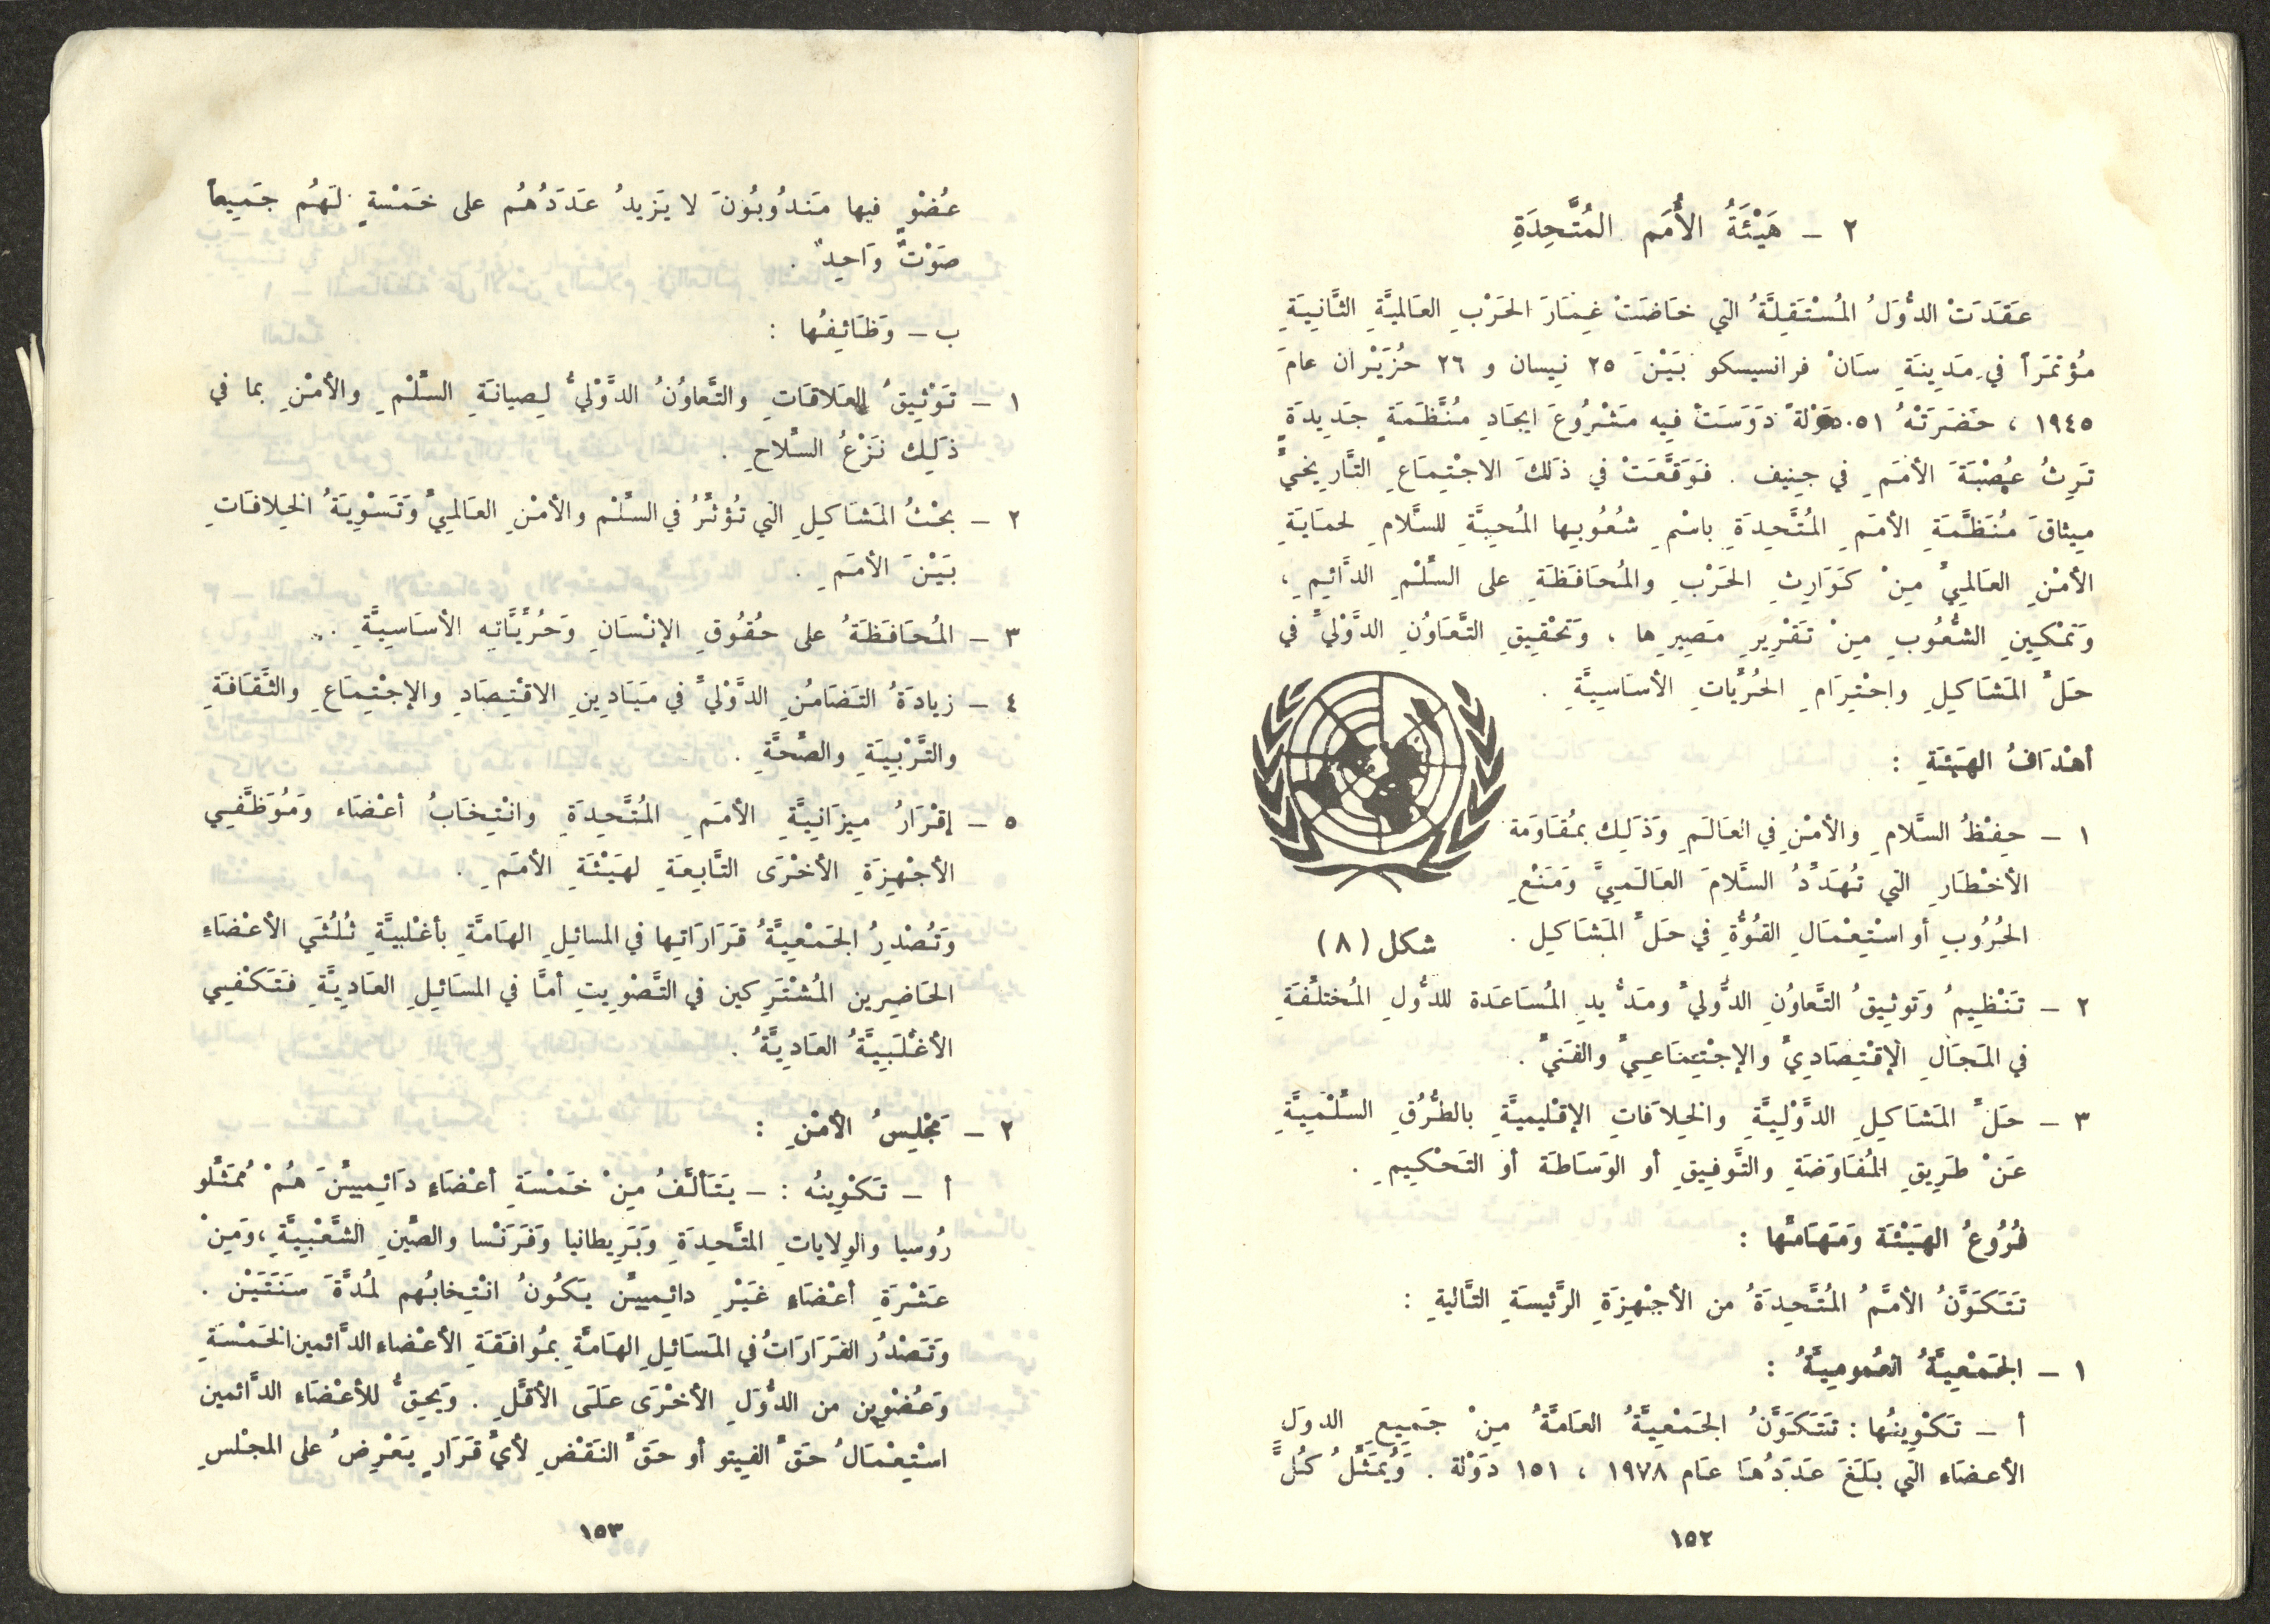 ٢ ـ هَيْئَةُ الأُمَم المُتَّحِدَةِ
عَقَدَتْ الدُّوَلُ المُسْتَقِلَّةُ التي خَاضَتْ غِمَارَ الحَرْبِ العَالميَّةِ الثَّانِيَةِ
مُؤتمَرَاً في مَدِينَةِ سَانْ فرانسيسكو بَيْنَ ٢٥ نِيسان و ٢٦ حُزَيْران عامَ
١٩٤٥ ، حَضَرَتْهُ ٥١ دَوْلةً دَوَسَتْ فِيه مَشْرُوعَ ايجَادِ مُنَّظَمَةٍ جَدِيدَةٍ
تَرِثُ عُصْبَةَ الأمَمِ في جِنِيف . فَوَقَّعَتْ في ذَلكَ الاجْتِماعِ التَّاريخيِّ
مِيثاقَ مُنَظَّمَةِ الأمَمِ المُتَّحِدَةِ باسْمِ شُعُوبِها المُحِبَّةِ للسَّلامِ لحمَايَةِ
الأمْنِ العَالميِّ مِنْ كَوَارِثِ الحَرْبِ والمُحَافَظَةِ على السِّلْمِ الدَّائِمِ ،
وَتمْكِينِ الشُّعُوبِ مِنْ تَقْرِيرِ مَصِيرِها ، وَتحْقِيقِ التَّعَاوُنِ الدَّوْليِّ في
حَلِّ المَشَاكِيلِ واحْتِرَامِ الحُرِّيَاتِ الأسَاسِيَّةِ .
أهْدَافُ الهَيْئَةِ :
١ ـ حِفْظُ السَّلامِ والأمْنِ في العَالَمِ وَذَلِك بمُقَاوَمَة
الأخْطَارِ التي تُهَدِّدُ السَّلامَ العَالَمِيَّ وَمَنْعِ
الحُرُوبِ أو اسْتِعْمَالِ القُوَّةِ في حَلِّ المَشَاكِيل .
شكل (٨)
٢ ـ تَنْظِيمُ وَتوثِيقُ التَّعاوُنِ الدُّوليِّ ومَدُّ يدِ المُسَاعَدة للدُّولِ المُختلِفَةِ
في المَجَالِ الإقْتِصَادِيِّ والإجْتِمَاعِيِّ والفَنيِّ .
٣ ـ حَلِّ المَشَاكِيلِ الدَّوْلِيَّةِ والخِلاَفاتِ الإقْلِيميَّةِ بالطُّرُقِ السِّلْمِيَّةِ
عَنْ طَرِيقِ المُفَاوَضَةِ والتَّوفِيقِ أو الوَسَاطَة أو التَحْكِيمِ .
فُرُوعُ الهَيْئَة وَمَهَامُّها :
تَتَكَوَّنُ الأمَّمُ المُتَّحِدَةُ من الأجْهِزَةِ الرَّئيسَةِ التَّاليةِ :
١ ـ الجَمْعِيَّةُ العُموميَّةُ :
أ ـ تَكْوِينُها : تَتَكَوَّنُ الجَمْعِيَّةُ العَامَّةُ مِنْ جَمِيعِ الدوَلِ
الأعضَاء التي بَلَغَ عَدَدُهَا عَام ١٩٧٨ ، ١٥١ دَوْلة . وَيُمَثِّلُ كُلَّ
١٥٢
عُضْوٍ فيها مَندُوبُونَ لا يَزيدُ عَدَدُهُم على خَمْسةٍ لَهُم جَميعاً
صَوْتٌ وَاحِدٌ .
ب ـ وَظَائِفُها :
١ ـ تَوْثِيقُ العَلاقَاتِ والتَّعاوُنُ الدَّوْليُّ لِصِيانَةِ السِّلْمِ والأمْنِ بما في
ذَلِك نَزْعُ السِّلاحِ .
٢ ـ بحْثُ المَشَاكِيلِ التي تُؤثِّرُ في السِّلْم والأمْنِ العَالميِّ وَتَسْوِيَةُ الخِلافَاتِ
بَيْنَ الأمَمِ .
٣ ـ المُحَافَظَةُ على حُقُوقِ الإنْسَانِ وَحُرِّيَّاتِه الأسَاسِيَّةِ .
٤ ـ زيادَةُ التَضَامُنِ الدَّوْليِّ في مَيَادِينِ الاقْتِصَادِ والإجْتِمَاعِ والثَّقَافَةِ
والتَّرْبِيَةِ والصِّحَّةِ .
٥ ـ إقْرَارُ مِيزَانِيَّةِ الأمَمِ المُتَّحِدَةِ وانْتِخَابُ أعْضَاء وَمُوَظَّفِي
الأجْهِزَةِ الأخْرَى التَّابِعَةِ لهَيْئَةِ الأمَمِ .
وَتُصْدِرُ الجَمْعِيَّةُ قَرَارَاتِها في المسائِلِ الهَامَةَّ بأغْلبيَّةِ ثُلُثَي الأعْضَاء
الحَاضِرِين المُشْتَرِكين في التَّصْوِيتِ أمَّا في المسَائِلِ العَادِيَّةِ فَتَكْفِي
الأغْلَبِيَّةُ العَادِيَّةُ .
٢ ـ مَجْلِسُ الأمْنِ :
أ ـ تَكْوِينُه : ـ يَتَألَّفُ مِنْ خَمْسَةِ أعْضَاءٍ دَائِمِيينَ هُمْ مُمَثِّلُو
رُوسيا والوِلاياتِ المتَّحِدَةِ وَبَرِيطانيا وَفَرَنْسا والصِّينِ الشَّعْبِيَّةِ ، وَمِنْ
عَشْرَةِ أعْضَاءٍ غَيْرِ دائِمِيين يَكُونُ انْتِخابُهم لمُدَّةَ سَنَتَيْن .
وَتَصْدُرُ القَرَارَاتُ في المَسَائِلِ الهَامَّةِ بمُوافَقَةِ الأعْضاء الدَّائمين الخَمْسَةِ
وَعُضْوين من الدُّوَلِ الأخْرَى عَلَى الأقَّلِ . وَيحِقُّ للأعْضَاء الدَّائمين
اسْتِعْمَالُ حَقِّ الفِيتو أو حَقِّ النَقْضِ لأيِّ قَرَارٍ يَعْرِضُ على المجْلسِ
١٥٣